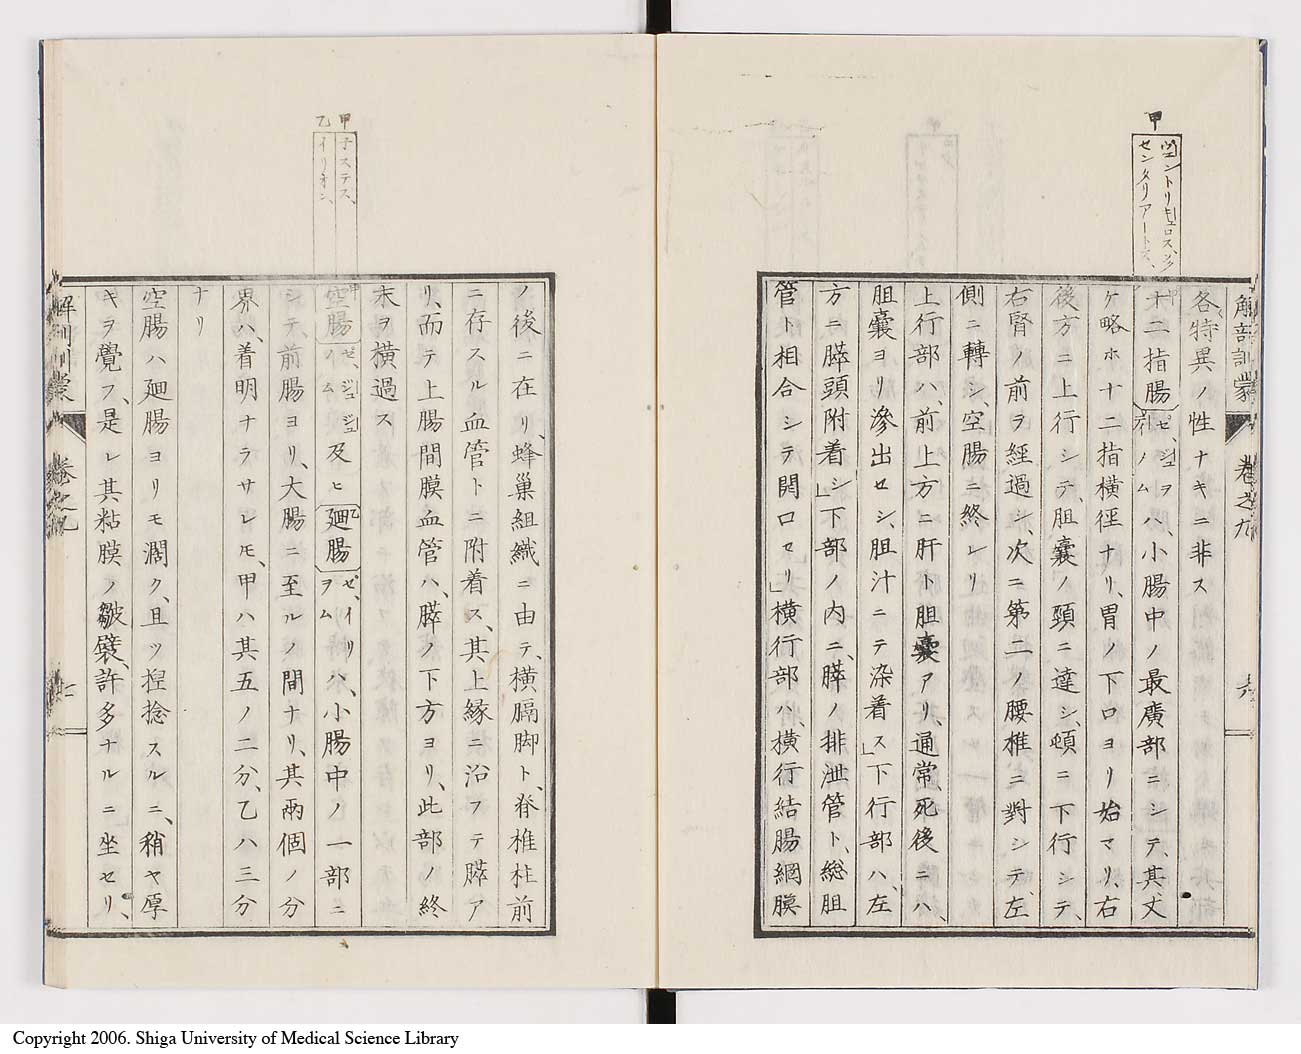 甲
ヴエントリキュロス、シュク
センタリアートス、
解剖訓蒙
巻之九
六
各特異ノ性ナキニ非ス
甲
十二指腸ピ、ジュヲノムハ、小腸中ノ最廣部ニシテ、其丈
ケ略ホ十二指横徑ナリ、胃ノ下口ヨリ始マリ、右
後方ニ上行シテ、胆嚢ノ頸ニ達シ、頓ニ下行シテ、
右腎ノ前ヲ經過シ、次ニ第二ノ腰椎ニ對シテ、左
側ニ轉シ、空腸ニ終レリ
上行部ハ、前上方ニ肝ト胆嚢アリ、通常、死後ニハ、
胆嚢ヨリ滲出セシ、胆汁ニテ染着ス」下行部ハ、左
方ニ膵頭附着シ」下部ノ内ニ、膵ノ排泄管ト、總胆
管ト相合シテ開口セリ」横行部ハ、横行結腸網膜
甲 子ステス、
乙 イリオン、
ノ後ニ在リ、蜂巢組織ニ由テ、横膈脚ト、脊椎柱前
ニ存スル血管トニ附着ス、其上緣ニ沿フテ膵ア
リ、而テ上腸間膜血管ハ、膵ノ下方ヨリ、此部ノ終
末ヲ横過ス
甲
空腸ゼ、ジュジュノム及ヒ乙廻腸ゼ、イリヲムハ、小腸中ノ一部ニ
シテ、前腸ヨリ、大腸ニ至ルノ間ナリ、其兩個ノ分
界ハ、着明ナラサレモ、甲ハ其五ノ二分、乙ハ三分
ナリ
空腸ハ廻腸ヨリモ濶ク、且ツ揑捻スルニ、稍ヤ厚
キヲ覺フ、是レ其粘膜ノ皺襞、許多ナルニ坐セリ、
解剖訓蒙
巻之九
七
Copyright 2006. Shiga University of Medical Science Library